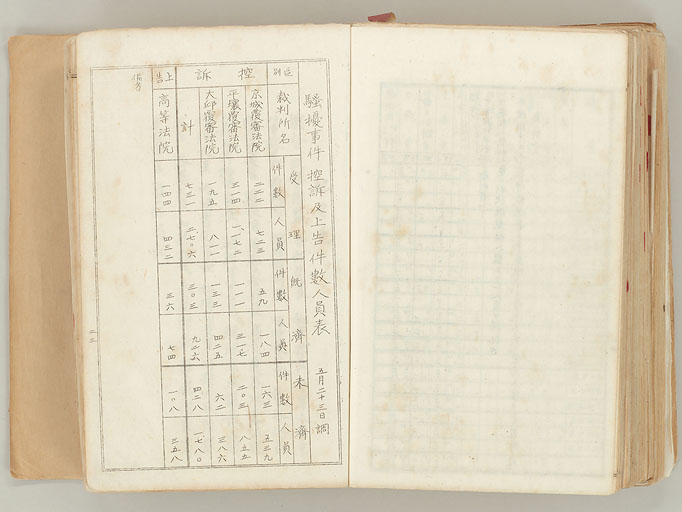 騷擾事件控訴及上告件數人員表 五月二十三日調
受理 既濟 未濟
区別 裁判所名 件數 人員 件數 人員 件數 人員
控訴
京城覆審法院 二二二 七二三 五九 一八四 一六三 五三九
平壤覆審法院 三一四 一、一七二 一一一 三一七 二〇三 八五五
大邱覆審法院 一九五 八一一 一三三 四二五 六二 三八六
計 七三一 二、七〇六 三〇三 九二六 四二八 一七八〇
上告 高等法院 一四四 四三二 三六 七四 一〇八 三五八
備考